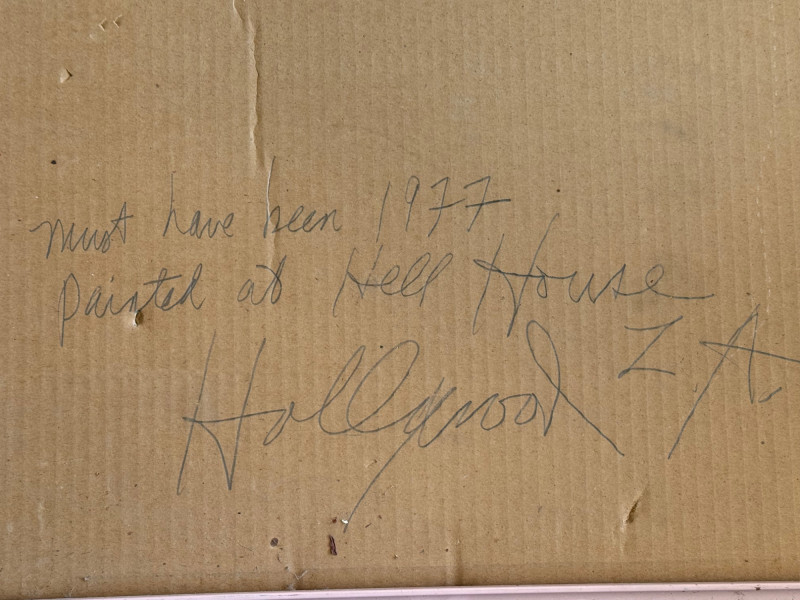 must have been 1977
Painted at Hell House
Hollywood L A.